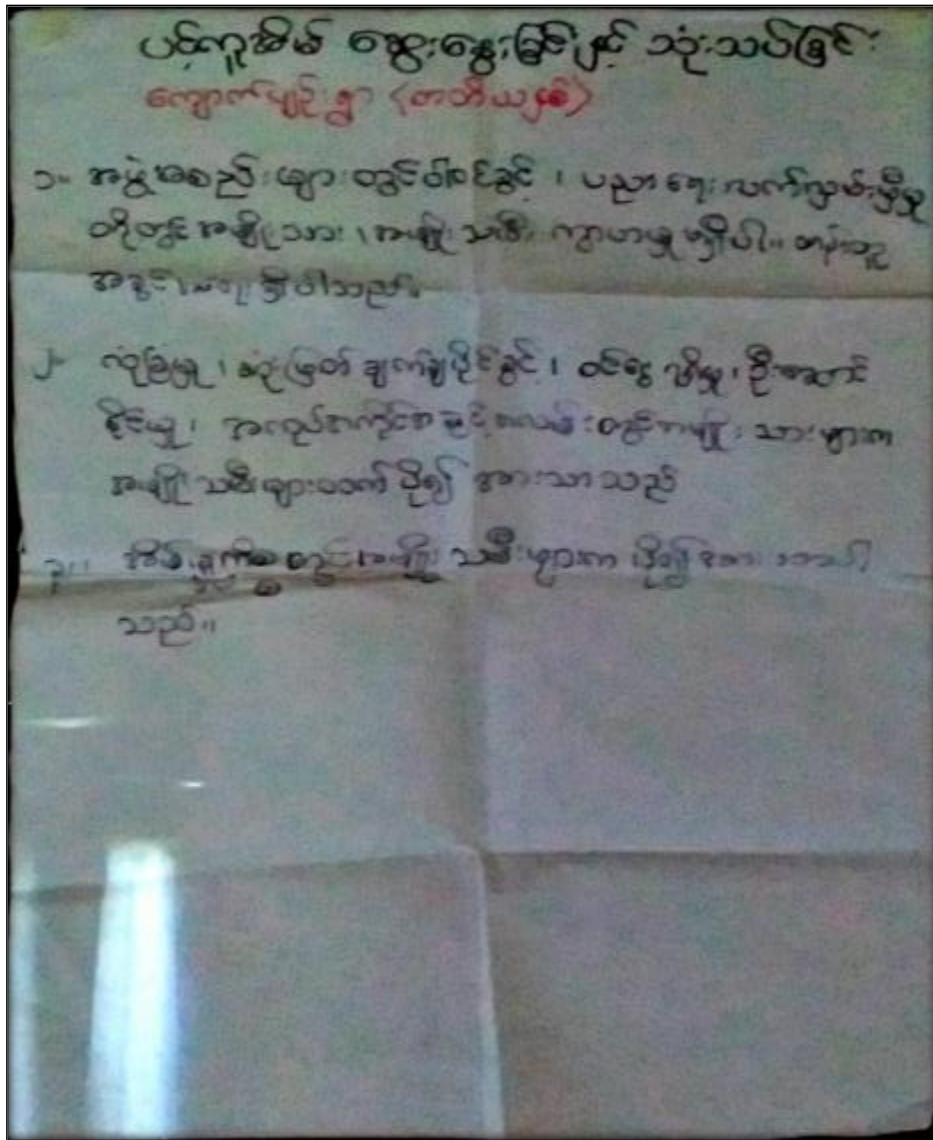 ပင့်ကူအိမ် ဆွေးနွေးခြင်းနှင့် သုံးသပ်ခြင်း
ကျောက်မျဉ်းရွာ (တတိယနှစ်)
၁။ အဖွဲ့အစည်းများတွင်ပါဝင်ခွင့်၊ ပညာရေးလက်လှမ်းမှီမှု
တို့တွင်အမျိုးသား၊ အမျိုးသမီး ကွာဟမှုမရှိပါ။ တန်းတူ
အခွင့်အရေးရှိပါသည်။
၂။ လုံခြုံမှု၊ ဆုံးဖြတ်ချက်ချပိုင်ခွင့်၊ ဝင်ငွေရရှိမှု၊ ဦးဆောင်
နိုင်မှု၊ အလုပ်အကိုင်အခွင့်အလမ်းတွင်အမျိုးသားများက
အမျိုးသမီးများထက် ပို၍ အားသာသည်
၃။ အိမ်မှုကိစ္စတွင်အမျိုးသမီးများက ပို၍အားသာပါ
သည်။